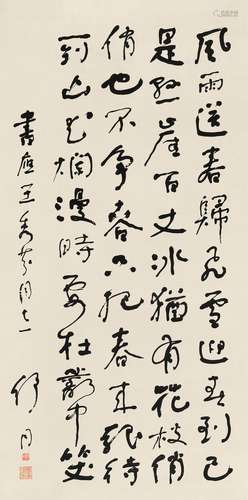 風雨送春歸飛雪迎春到已
是懸崖百丈冰猶有花枝俏
俏也不爭春只把春來報待
到山花爛漫時她在叢中笑
書應王同志
舒同